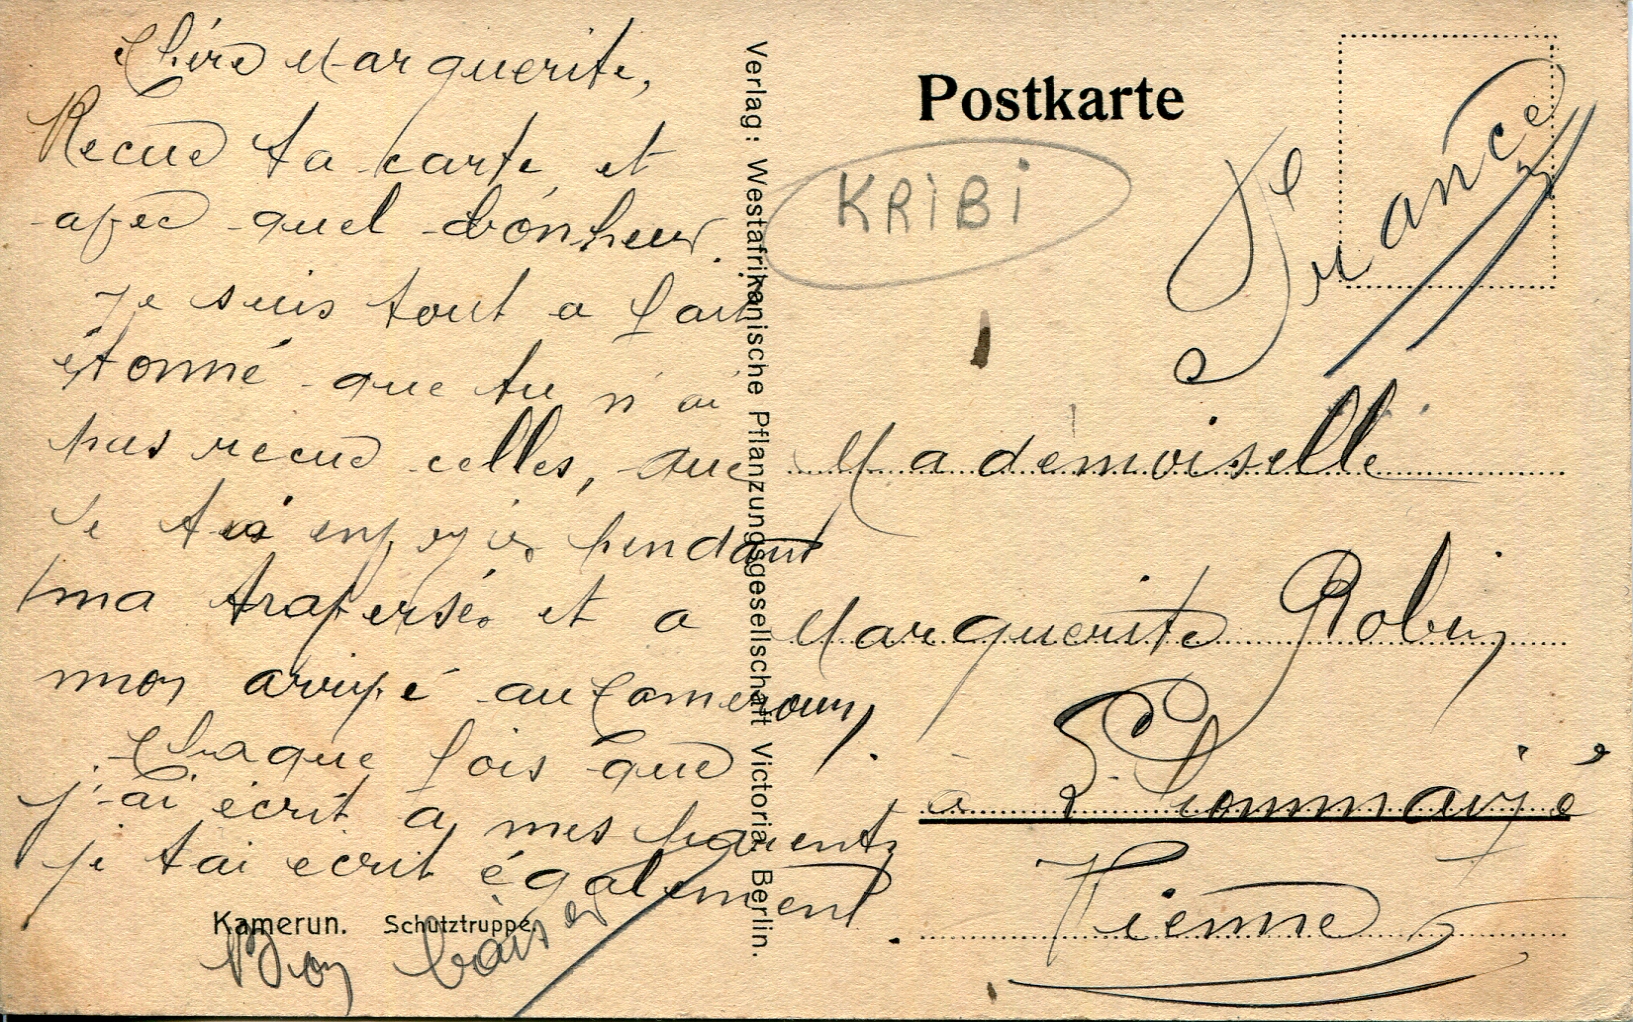 Chère Marguerite,
Recue ta carte et
avec quel bonheur.
Je suis tout a fait
étonné que tu n'ai
pas recue celles, que
Je t'ai envoyiés pendant
ma traversée et a
mon arrivé au Cameroun.
Chaque fois que
j'ai écrit a mes parents
je t'ai ecrit également
Bon baiser
Kamerun. Schutztruppe.
Verlag: Westafrikanische Pflanzungsgesellschaft Victoria, Berlin.
Postkarte
KRIBI
France
Mademoiselle
Marguerite Robin
à
Vienne